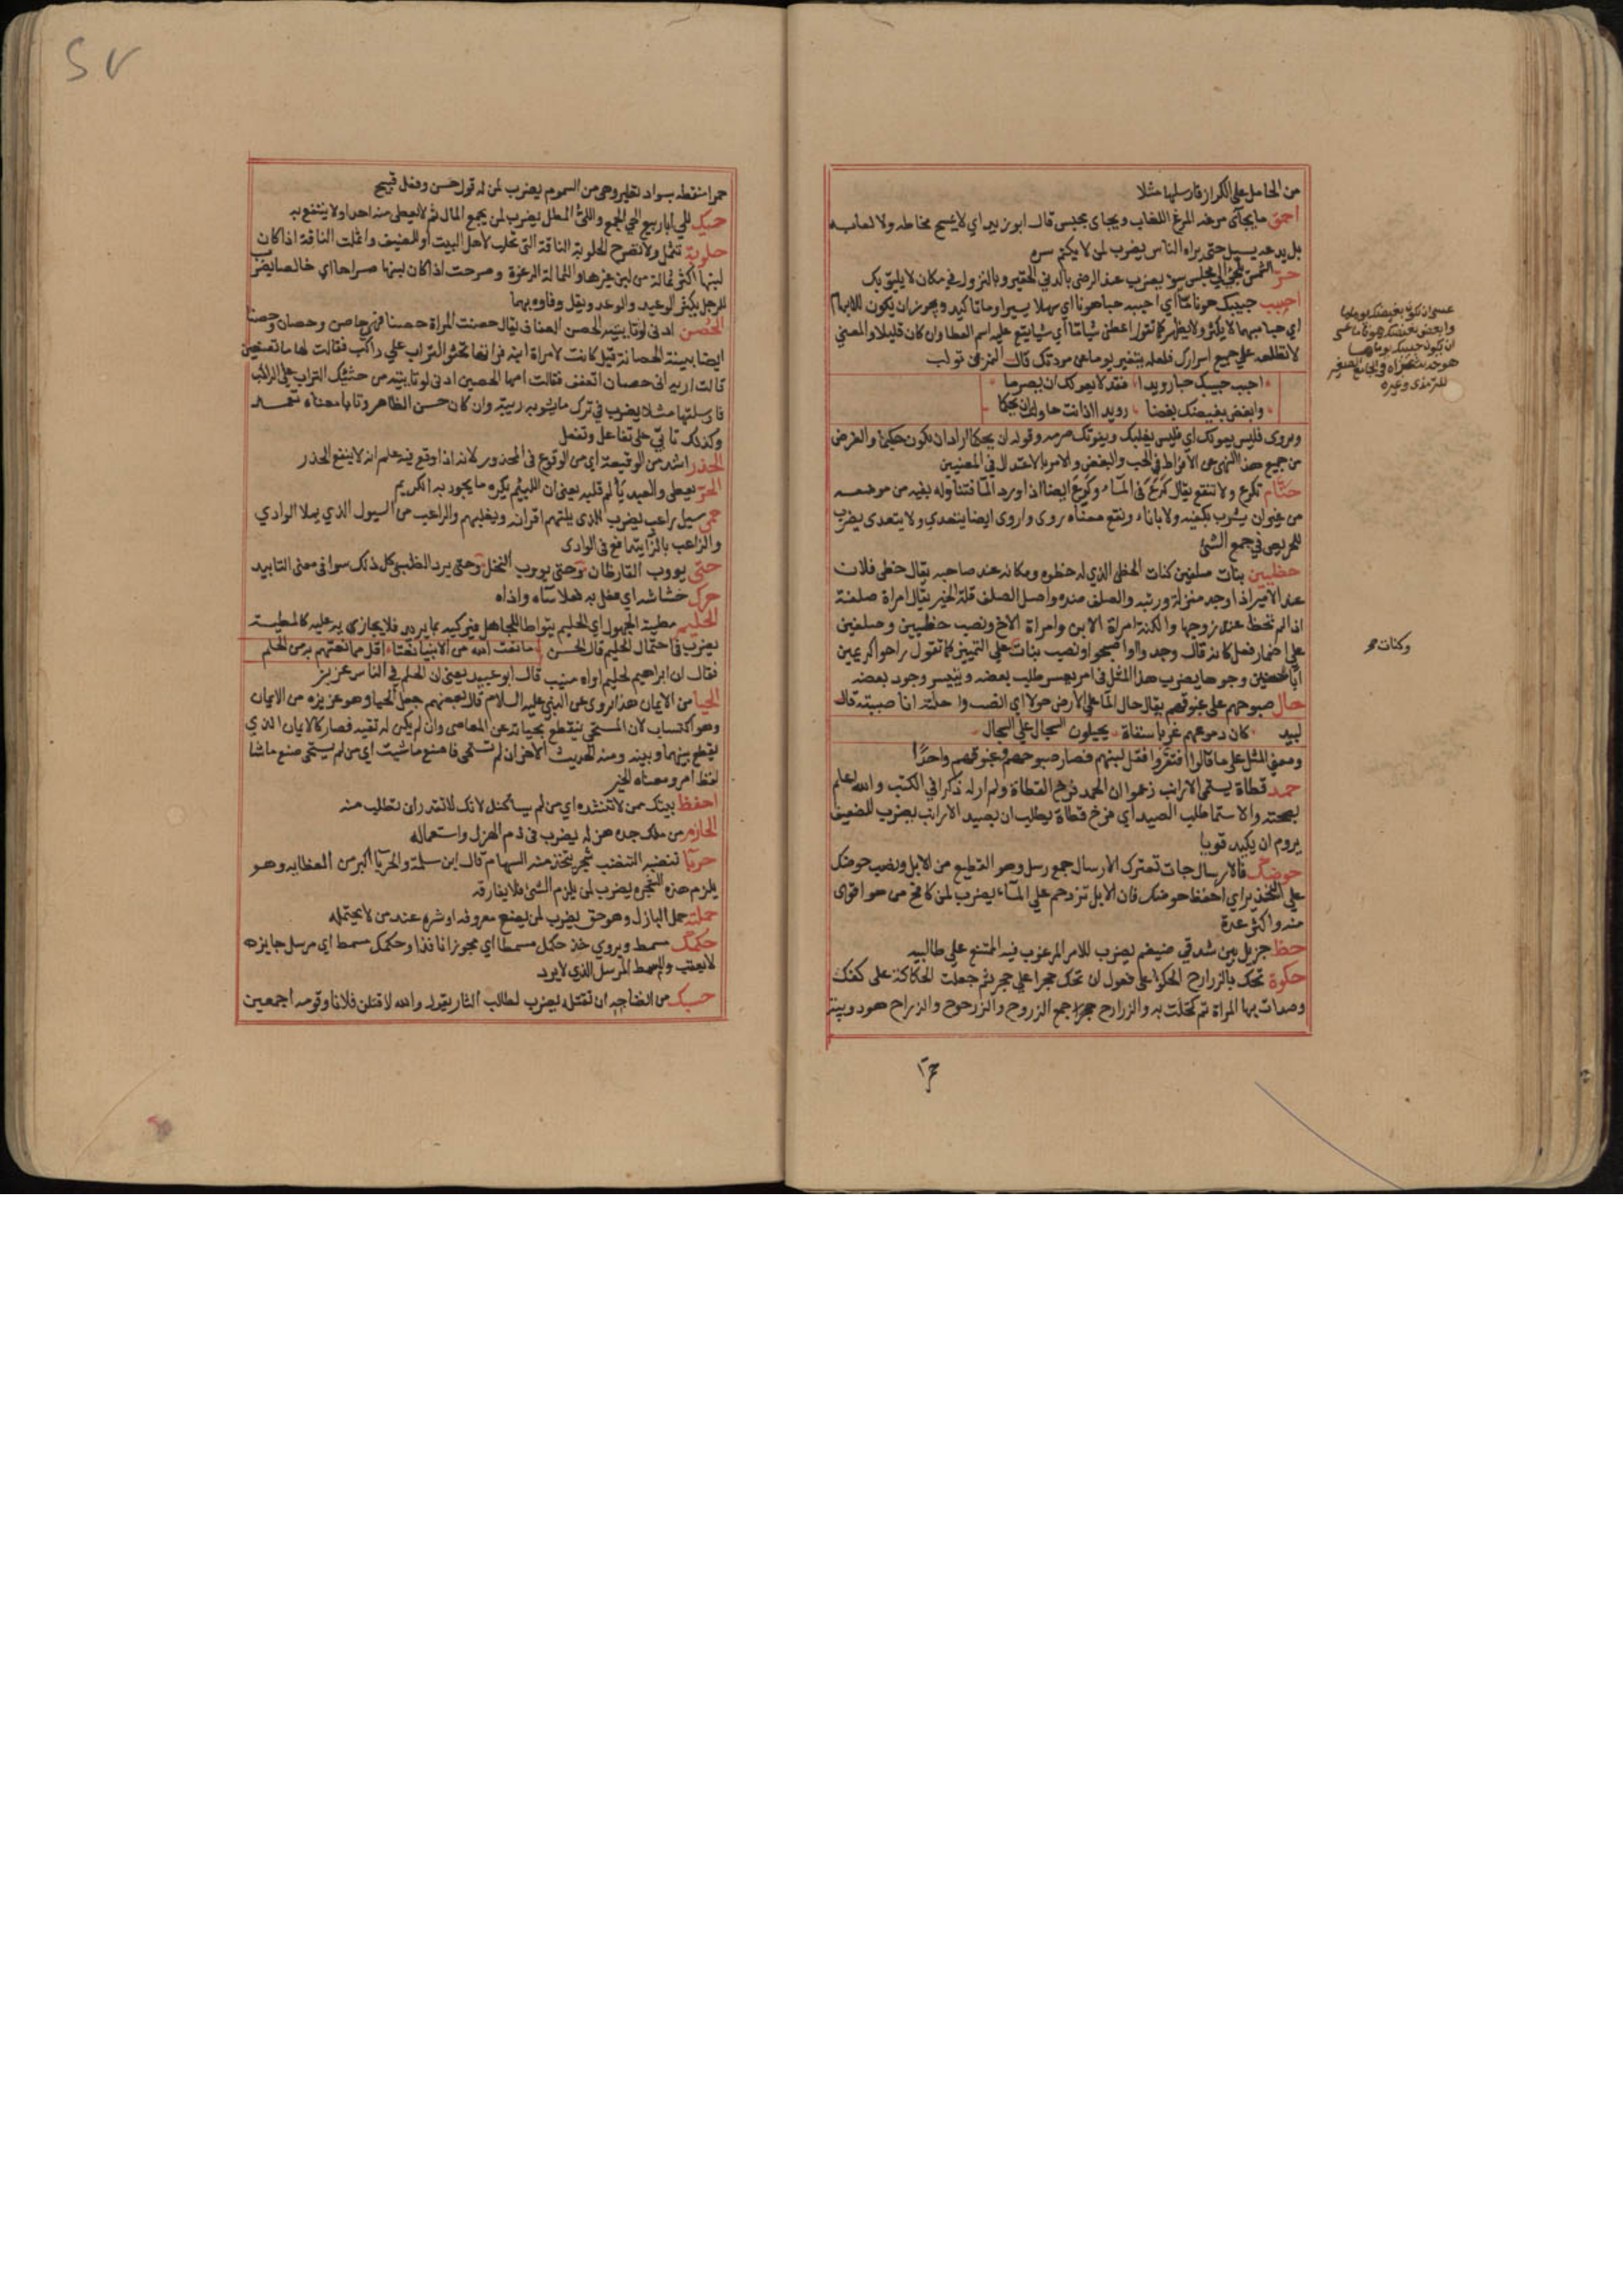 من الحامل على الكراز فارسلها مثلا
احمق ما يجأى مرغه المرغ اللعاب ويجاى يحبس قال ابو زيد اي لا يمسح مخاطه ولا لعابه
بل يدعه يسيل حتى يراه الناس يضرب لمن لا يكتم سره
حرّ الشمس يلجئ الى مجلس سوء يضرب عند الرضى بالدني الحقير وبالنزول في مكان لا يليق بك
احبب حبيبك هونا مّا اي احببه حبا هونا اي سهلا يسيرا وما تاكيد ويجوز ان يكون للابهام
اي حبا مبهما لا يكثر ولا يظهر كما تقول اعطني شيا ما اي شيا يقع عليه اسم العطا وان كان قليلا والمعنى
لا تطلعه على جميع اسرارك فلعله يتغير يوما عن مودتك قال النمر بن تولب
احبب حبيبك حبا رويدا فقد لا يعولك ان تصرما
وابغض بغيضك بغضا رويدا اذا انت حاولت ان تحكما
ويروى فليس يعولك اي فليس يغلبك ويفوتك صرمه وقوله ان تحكما اراد ان تكون حكيما والغرض
من جميع هذا النهي عن الافراط في الحب والبغض والامر بالاعتدال في المعنيين
حتّام تكرع ولا تنقع يقال كرع في الماء وكرع ايضا اذا ورد الماء فتناوله بفيه من موضعه
من غير ان يشرب بكفيه ولا باناء ونقع معناه روى واروى ايضا يتعدى ولا يتعدى يضرب
للحريص في جمع الشئ
حظيين بنات صلفين كنات الحظي الذي له حظوه ومكانه عند صاحبه يقال حظي فلان
عند الامير اذا وجد منزلة ورتبه والصلف ضده واصل الصلف قلة الخير يقال امراة صلفة
اذا لم تحظ عند زوجها والكنة امراة الابن وامراة الاخ ونصب حظيين وصلفين
على اضمار فعل كانه قال وجدوا او اصبحوا ونصب بنات على التمييز كما تقول راحوا كريمين
آباء حسنين وجوها يضرب هذا المثل في امر يعسر طلب بعضه ويتيسر وجود بعضه
حال صبوحهم على غبوقهم يقال حال الماء على الارض حولا اي انصب واحلته انا صببته قال
لبيد كان دموعهم غربا سناة يحيلون السجال على السجال
ومعنى المثل على ما قالوا افتقروا فقل لبنهم فصار صبوحهم وغبوقهم واحدا
حمد قطاة يستمي الارانب زعموا ان الحمد فرخ القطاة ولم ار له ذكرا في الكتب والله اعلم
بصحته والاستما طلب الصيد اي فرخ قطاة يطلب ان يصيد الارانب يضرب للضعيف
يروم ان يكيد قويا
حوضك فالارسال جات تعترك الارسال جمع رسل وهو القطيع من الابل ونصب حوضك
على التحذير اي احفظ حوضك فان الابل تزدحم على الماء يضرب لمن كافح من هو اقوى
منه واكثر عدة
حظ جزيل بين شدقي ضيغم يضرب للامر المرغوب فيه الممتنع على طالبيه
حكوة تحك بالزرارح الحكوة على فعول ان تحك حجرا على حجر ثم جعلت الحكاكة على كفك
وصدات بها المراة ثم كحلت به والزرارح جمع الزروح والزرحوح والزراح هو دويبة
عسى ان يكون بغيضك يوما ما
وابغض بغيضك هونا ما عسى
ان يكون حبيبك يوما ما
هو حديث عزاه في الجامع الصغير
للترمذي وغيره
وكنات صح
حمرا
حمرا منقطه بسواد تطير وهي من السموم يضرب لمن له قول حسن وفعل قبيح
حيك للي ابا ربيع الحي الجمع واللي المطل يضرب لمن يجمع المال ثم لا يعطي منه احدا ولا ينتفع به
حلوبة تثمل ولا تصرح الحلوبة الناقة التي تحلب لاهل البيت او للضيف واثملت الناقة اذا كان
لبنها اكثر ثمالة من لبن غيرها والثمالة الرغوة وصرحت اذا كان لبنها صراحا اي خالصا يضرب
للرجل يكثر الوعيد والوعد ويقل وفاوه بهما
الحصن ادنى لو تاييته الحصن العفاف يقال حصنت المراة حصنا فهي حاصن وحصان وحصنا
ايضا بينة الحصانة قيل كانت لامراة ابنة فراتها تحثو التراب على راكب فقالت لها ما تصنعين
قالت اريه اني حصان اتعفف فقالت امها الحصن ادنى لو تاييته من حثيك الترب على الراكب
فارسلتها مثلا يضرب في ترك ما يشوبه ريبة وان كان حسن الظاهر وتايا معناه تعمد
وكذلك تاتي على تفاعل وتفعل
الحذر اشد من الوقيعة اي من الوقوع في المحذور لانه اذا وقع فيه علم انه لا ينفع الحذر
الحر يعطي والعبد يألم قلبه يعني ان اللئيم يكره ما يجود به الكريم
حمى سيل راعب يضرب للذي يلتهم اقرانه ويغلبهم والراعب من السيول الذي يملا الوادي
والزاعب بالزاي يتدافع في الوادى
حتى يووب القارظان وحتى يووب المنخل وحتى يرد الضب كل ذلك سوا في معنى التابيد
حرك خشاشه اي فعل به فعلا ساه واذاه
الحليم مطية الجهول اي الحليم يتواطا للجاهل فيركبه بما يريد فلا يجازيه عليه كالمطية
يضرب في احتمال الحليم قال الحسن ما نعت الله من الانبيا نعتا اقل مما نعتهم به من الحلم
فقال ان ابراهيم لحليم اواه منيب قال ابو عبيد يعني ان الحلم في الناس عزيز
الحيا من الايمان هذا يروى عن النبي عليه السلام قال بعضهم جعل الحيا وهو غريزه من الايمان
وهو اكتساب لان المستحي ينقطع بحيائه عن المعاصي وان لم يكن له تقيه فصار كالايمان الذي
يقطع بينها وبينه ومنه الحديث الاخر اذا لم تستحي فاصنع ما شيت اي من لم يستحي صنع ما شا
لفظه امر ومعناه الخبر
احفظ بيتك ممن لا تنشده اي من لم يساكنك لانك لا تقدر ان تطلب منه
الحازم من ملك جده هزله يضرب في ذم الهزل واستعماله
حربا تنضبه التنضب شجر يتخذ منه السهام قال ابن سلمة والحربا اكبر من العظايه وهو
يلزم هذه الشجره يضرب لمن يلزم الشئ فلا يفارقه
حملته حمل البازل وهو حق يضرب لمن يضع معروفه او شره عند من لا يحتمله
حكمك مسمط ويروي خذ حكمك مسمطا اي مجوزا نافذا وحكمك مسمط اي مرسل جايزه
لا يعقب والمسمط المرسل الذي لا يرد
حسبك من انضاجه ان تقتله يضرب لطالب الثار يقول والله لا قتلن فلانا وقومه اجمعين